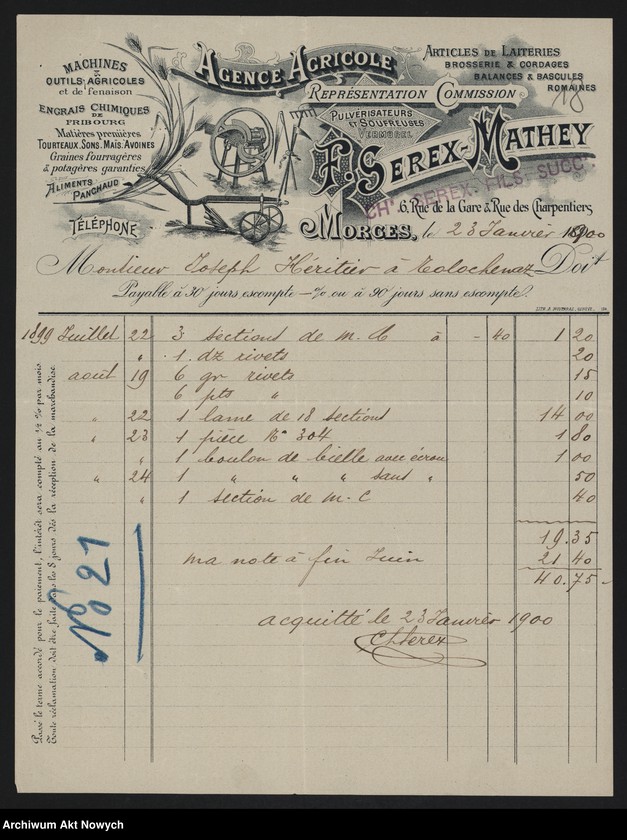 MACHINES
&
OUTILS AGRICOLES
et de fenaison
ENGRAIS CHIMIQUES
DE
FRIBOURG
Matières premières
TOURTEAUX, SONS, MAÏS, AVOINES
Graines fourragères
& potagères garanties
ALIMENTS
PANCHAUD
TÉLÉPHONE
AGENCE AGRICOLE
REPRÉSENTATION COMMISSION
PULVÉRISATEURS
ET SOUFREUSES
VERMOREL
ARTICLES DE LAITERIES
BROSSERIE & CORDAGES
BALANCES & BASCULES
ROMAINES
18
F. SEREX-MATHEY
CHS SEREX, FILS, SUCC
6, Rue de la Gare & Rue des Charpentiers,
MORGES, le 23 Janvier 1900
Monsieur Joseph Héritier à Tolochenaz Doit
Payable à 30 jours escompte — % ou à 90 jours sans escompte.
1899 Juillet 22 3 sections de m. C à - 40 1 20
" 1 dz rivets 20
août 19 6 gr rivets 15
6 pts " 10
" 22 1 lame de 18 sections 14 00
" 23 1 pièce No 304 1 80
" 1 boulon de bielle avec écrou 1 00
" 24 1 " " " sans " 50
" 1 section de m-C 40
19.35
ma note à fin Juin 21 40
40.75
acquitté le 23 Janvier 1900
Ch Serex
No 21
Passé le terme accordé pour le paiement, l'intérêt sera compté au ½ % par mois.
Toute réclamation doit être faite dans les 8 jours dès la réception de la marchandise
Archiwum Akt Nowych